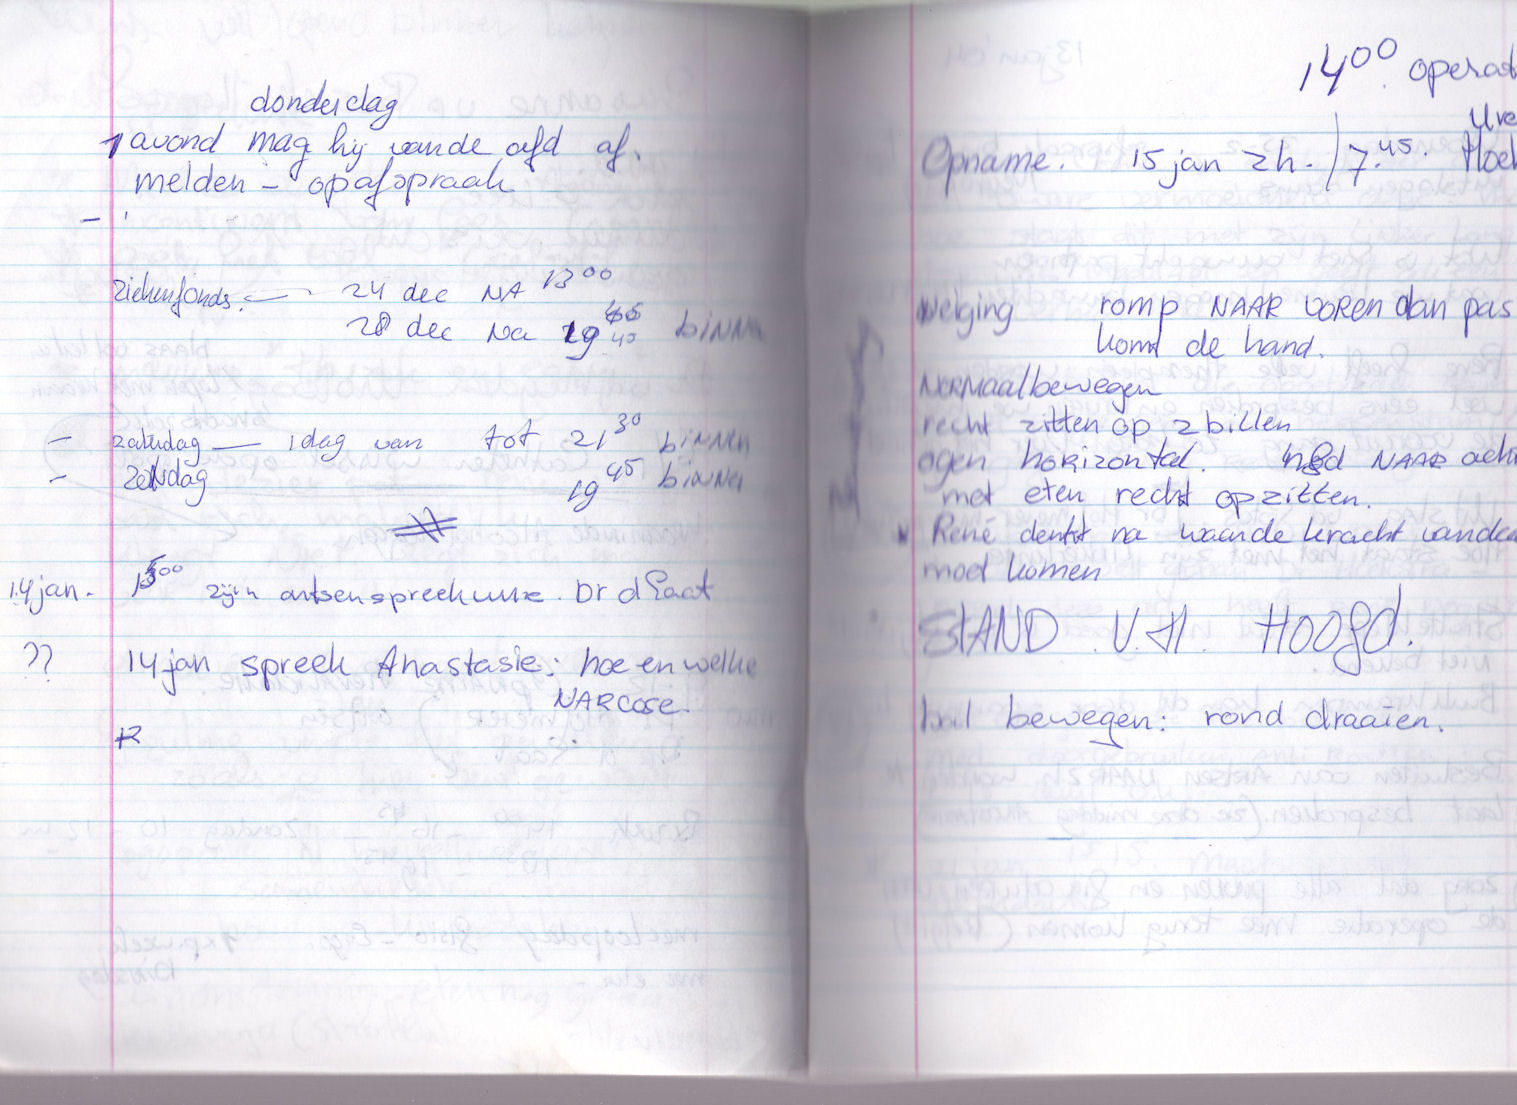 donderdag
1 avond mag hij vande afd af.
melden - op afspraak
-
ziekenfonds. — 24 dec NA 13 00
28 dec Na 19 45 binnen
- zaterdag — 1 dag van tot 21 30 binnen
- zondag 19 45 binnen
14 jan. 15 00 zijn artsenspreekuur. Dr d
?? 14 jan spreek Anastasie: hoe en welke
NARCOSE.
14 00 operat
Opname. 15 jan 2h. / 7.45.
Neiging romp NAAR voren dan pas
komt de hand.
NORMaal bewegen
recht zitten op 2 billen
ogen horizontal. NAAR
met eten recht op zitten.
* René denkt na waar de kracht
moet komen
STAND V.H. HOOfd.
bal bewegen: rond draaien.